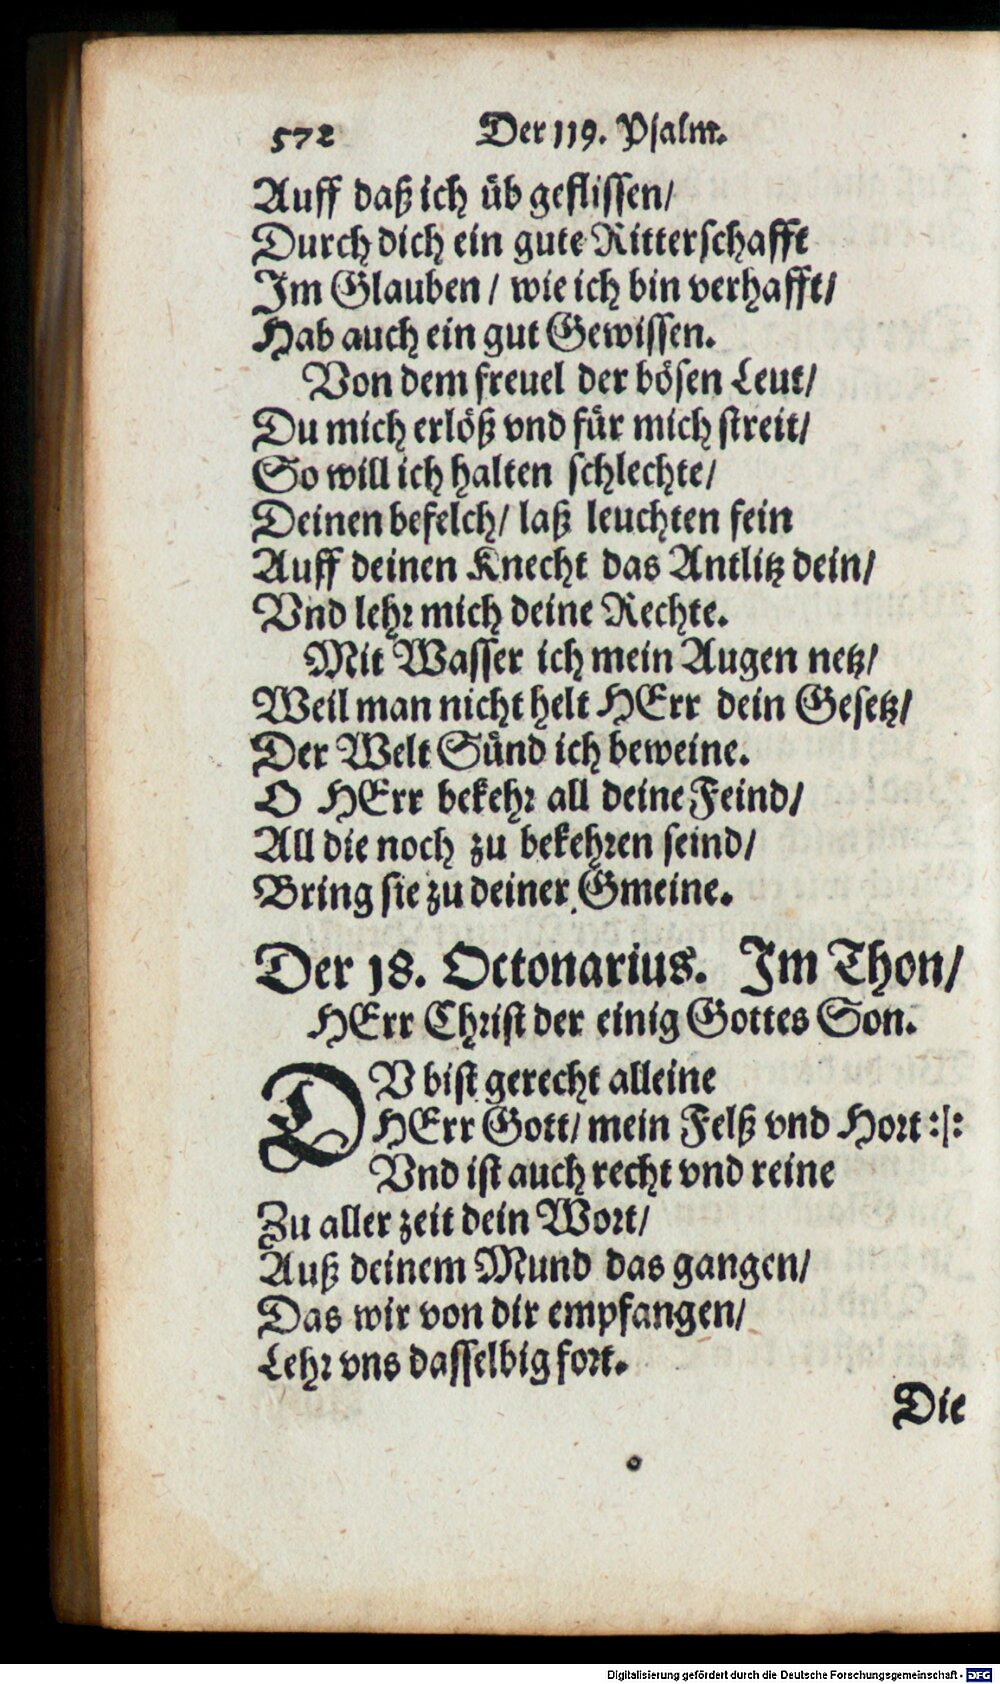 572 Der 119. Psalm.
Auff daß ich üb geflissen/
Durch dich ein gute Ritterschafft
Im Glauben / wie ich bin verhafft/
Hab auch ein gut Gewissen.
Von dem freuel der bösen Leut/
Du mich erlöß vnd für mich streit/
So will ich halten schlechte/
Deinen befelch/ laß leuchten fein
Auff deinen Knecht das Antlitz dein/
Vnd lehr mich deine Rechte.
Mit Wasser ich mein Augen netz/
Weil man nicht helt HErr dein Gesetz/
Der Welt Sünd ich beweine.
O HErr bekehr all deine Feind/
All die noch zu bekehren seind/
Bring sie zu deiner Gmeine.
Der 18. Octonarius. Im Thon/
HErr Christ der einig Gottes Son.
DV bist gerecht alleine
HErr Gott/ mein Felß vnd Hort :|:
Vnd ist auch recht vnd reine
Zu aller zeit dein Wort/
Auß deinem Mund das gangen/
Das wir von dir empfangen/
Lehr vns dasselbig fort.
Die
Digitalisierung gefördert durch die Deutsche Forschungsgemeinschaft - DFG